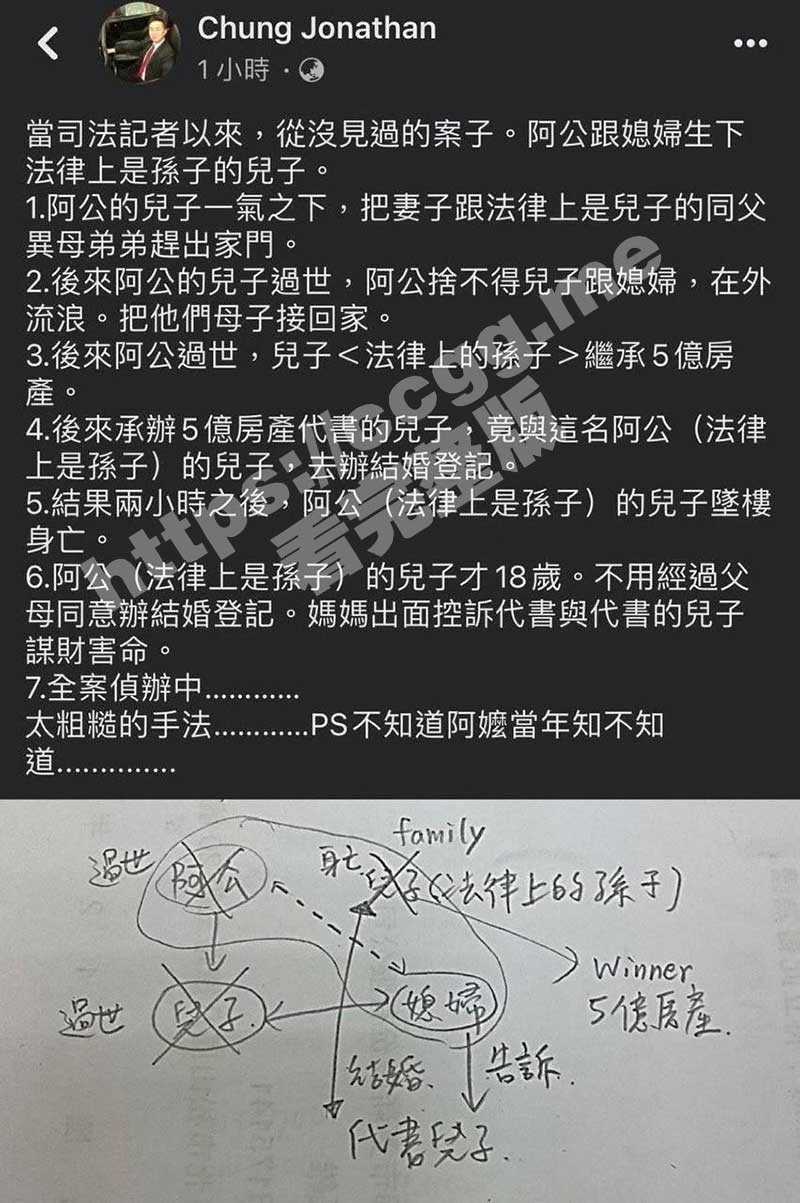 Chung Jonathan
1 小時 ·
當司法記者以來，從沒見過的案子。阿公跟媳婦生下
法律上是孫子的兒子。
1.阿公的兒子一氣之下，把妻子跟法律上是兒子的同父
異母弟弟趕出家門。
2.後來阿公的兒子過世，阿公捨不得兒子跟媳婦，在外
流浪。把他們母子接回家。
3.後來阿公過世，兒子＜法律上的孫子＞繼承5億房
產。
4.後來承辦5億房產代書的兒子，竟與這名阿公（法律
上是孫子）的兒子，去辦結婚登記。
5.結果兩小時之後，阿公（法律上是孫子）的兒子墜樓
身亡。
6.阿公（法律上是孫子）的兒子才18歲。不用經過父
母同意辦結婚登記。媽媽出面控訴代書與代書的兒子
謀財害命。
7.全案偵辦中............
太粗糙的手法............PS不知道阿嬤當年知不知
道..............
https://ccgg.me
看完整版
family
過世 阿公 身亡 兒子(法律上的孫子)
winner
過世 兒子 媳婦 5億房產.
結婚. 告訴.
代書兒子.